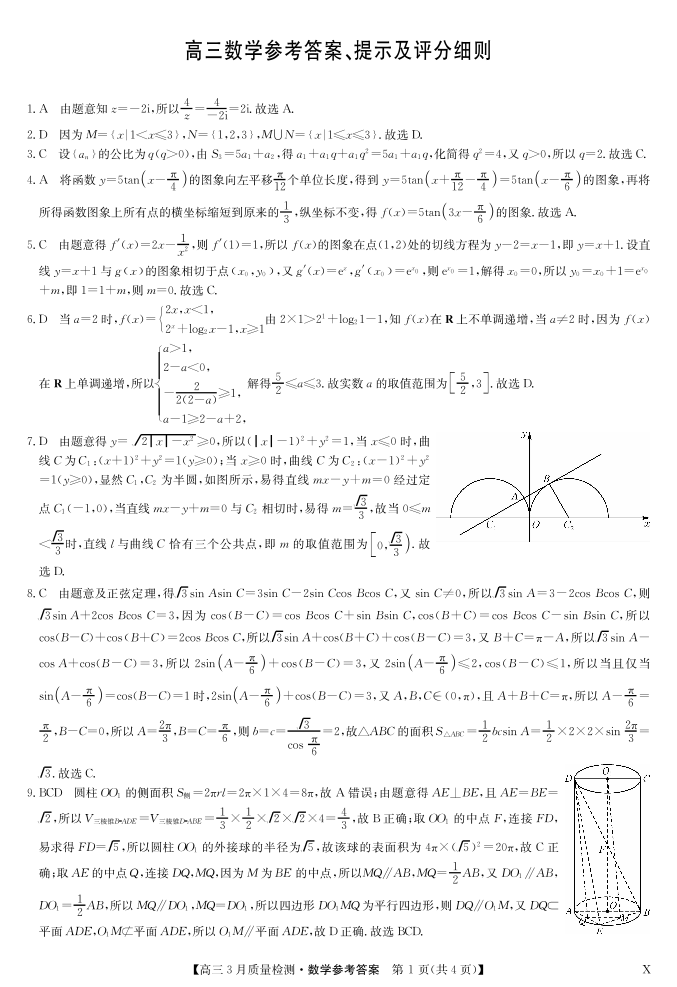 高三数学参考答案、提示及评分细则
1. A 由题意知 z=-2i,所以4/z=4/(-2i)=2i. 故选 A.
2. D 因为 M={x|1<x≤3},N={1,2,3},M∪N={x|1≤x≤3}. 故选 D.
3. C 设{aₙ}的公比为 q(q>0),由 S₃=5a₁+a₂,得 a₁+a₁q+a₁q²=5a₁+a₁q,化简得 q²=4,又 q>0,所以 q=2. 故选 C.
4. A 将函数 y=5tan(x-π/4)的图象向左平移π/12个单位长度,得到 y=5tan(x+π/12-π/4)=5tan(x-π/6)的图象,再将
所得函数图象上所有点的横坐标缩短到原来的1/3,纵坐标不变,得 f(x)=5tan(3x-π/6)的图象. 故选 A.
5. C 由题意得 f′(x)=2x-1/x²,则 f′(1)=1,所以 f(x)的图象在点(1,2)处的切线方程为 y-2=x-1,即 y=x+1. 设直
线 y=x+1 与 g(x)的图象相切于点(x₀,y₀),又 g′(x)=eˣ,g′(x₀)=e^x₀,则 e^x₀=1,解得 x₀=0,所以 y₀=x₀+1=e^x₀
+m,即 1=1+m,则 m=0. 故选 C.
6. D 当 a=2 时,f(x)={2x,x<1, 2ˣ+log₂x-1,x≥1 由 2×1>2¹+log₂1-1,知 f(x)在 R 上不单调递增,当 a≠2 时,因为 f(x)
在 R 上单调递增,所以{a>1, 2-a<0, -2/(2(2-a))≥1, a-1≥2-a+2, 解得5/2≤a≤3. 故实数 a 的取值范围为[5/2,3]. 故选 D.
7. D 由题意得 y=√(2|x|-x²)≥0,所以(|x|-1)²+y²=1,当 x≤0 时,曲
线 C 为 C₁:(x+1)²+y²=1(y≥0);当 x≥0 时,曲线 C 为 C₂:(x-1)²+y²
=1(y≥0),显然 C₁,C₂ 为半圆,如图所示,易得直线 mx-y+m=0 经过定
点 C₁(-1,0),当直线 mx-y+m=0 与 C₂ 相切时,易得 m=√3/3,故当 0≤m
<√3/3时,直线 l 与曲线 C 恰有三个公共点,即 m 的取值范围为[0,√3/3). 故
选 D.
y
A
B
C₁
O
C₂
x
8. C 由题意及正弦定理,得√3sin Asin C=3sin C-2sin Ccos Bcos C,又 sin C≠0,所以√3sin A=3-2cos Bcos C,则
√3sin A+2cos Bcos C=3,因为 cos(B-C)=cos Bcos C+sin Bsin C,cos(B+C)=cos Bcos C-sin Bsin C,所以
cos(B-C)+cos(B+C)=2cos Bcos C,所以√3sin A+cos(B+C)+cos(B-C)=3,又 B+C=π-A,所以√3sin A-
cos A+cos(B-C)=3,所以 2sin(A-π/6)+cos(B-C)=3,又 2sin(A-π/6)≤2,cos(B-C)≤1,所以当且仅当
sin(A-π/6)=cos(B-C)=1 时,2sin(A-π/6)+cos(B-C)=3,又 A,B,C∈(0,π),且 A+B+C=π,所以 A-π/6=
π/2,B-C=0,所以 A=2π/3,B=C=π/6,则 b=c=√3/cos π/6=2,故△ABC 的面积 S△ABC=1/2bcsin A=1/2×2×2×sin 2π/3=
√3. 故选 C.
9. BCD 圆柱 OO₁ 的侧面积 S侧=2πrl=2π×1×4=8π,故 A 错误;由题意得 AE⊥BE,且 AE=BE=
√2,所以 V三棱锥B-ADE=V三棱锥D-ABE=1/3×1/2×√2×√2×4=4/3,故 B 正确;取 OO₁ 的中点 F,连接 FD,
易求得 FD=√5,所以圆柱 OO₁ 的外接球的半径为√5,故该球的表面积为 4π×(√5)²=20π,故 C 正
确;取 AE 的中点 Q,连接 DQ,MQ,因为 M 为 BE 的中点,所以 MQ∥AB,MQ=1/2AB,又 DO₁∥AB,
DO₁=1/2AB,所以 MQ∥DO₁,MQ=DO₁,所以四边形 DO₁MQ 为平行四边形,则 DQ∥O₁M,又 DQ⊂
平面 ADE,O₁M⊄平面 ADE,所以 O₁M∥平面 ADE,故 D 正确. 故选 BCD.
D
C
F
A
B
E
【高三 3 月质量检测·数学参考答案 第 1 页(共 4 页)】
X